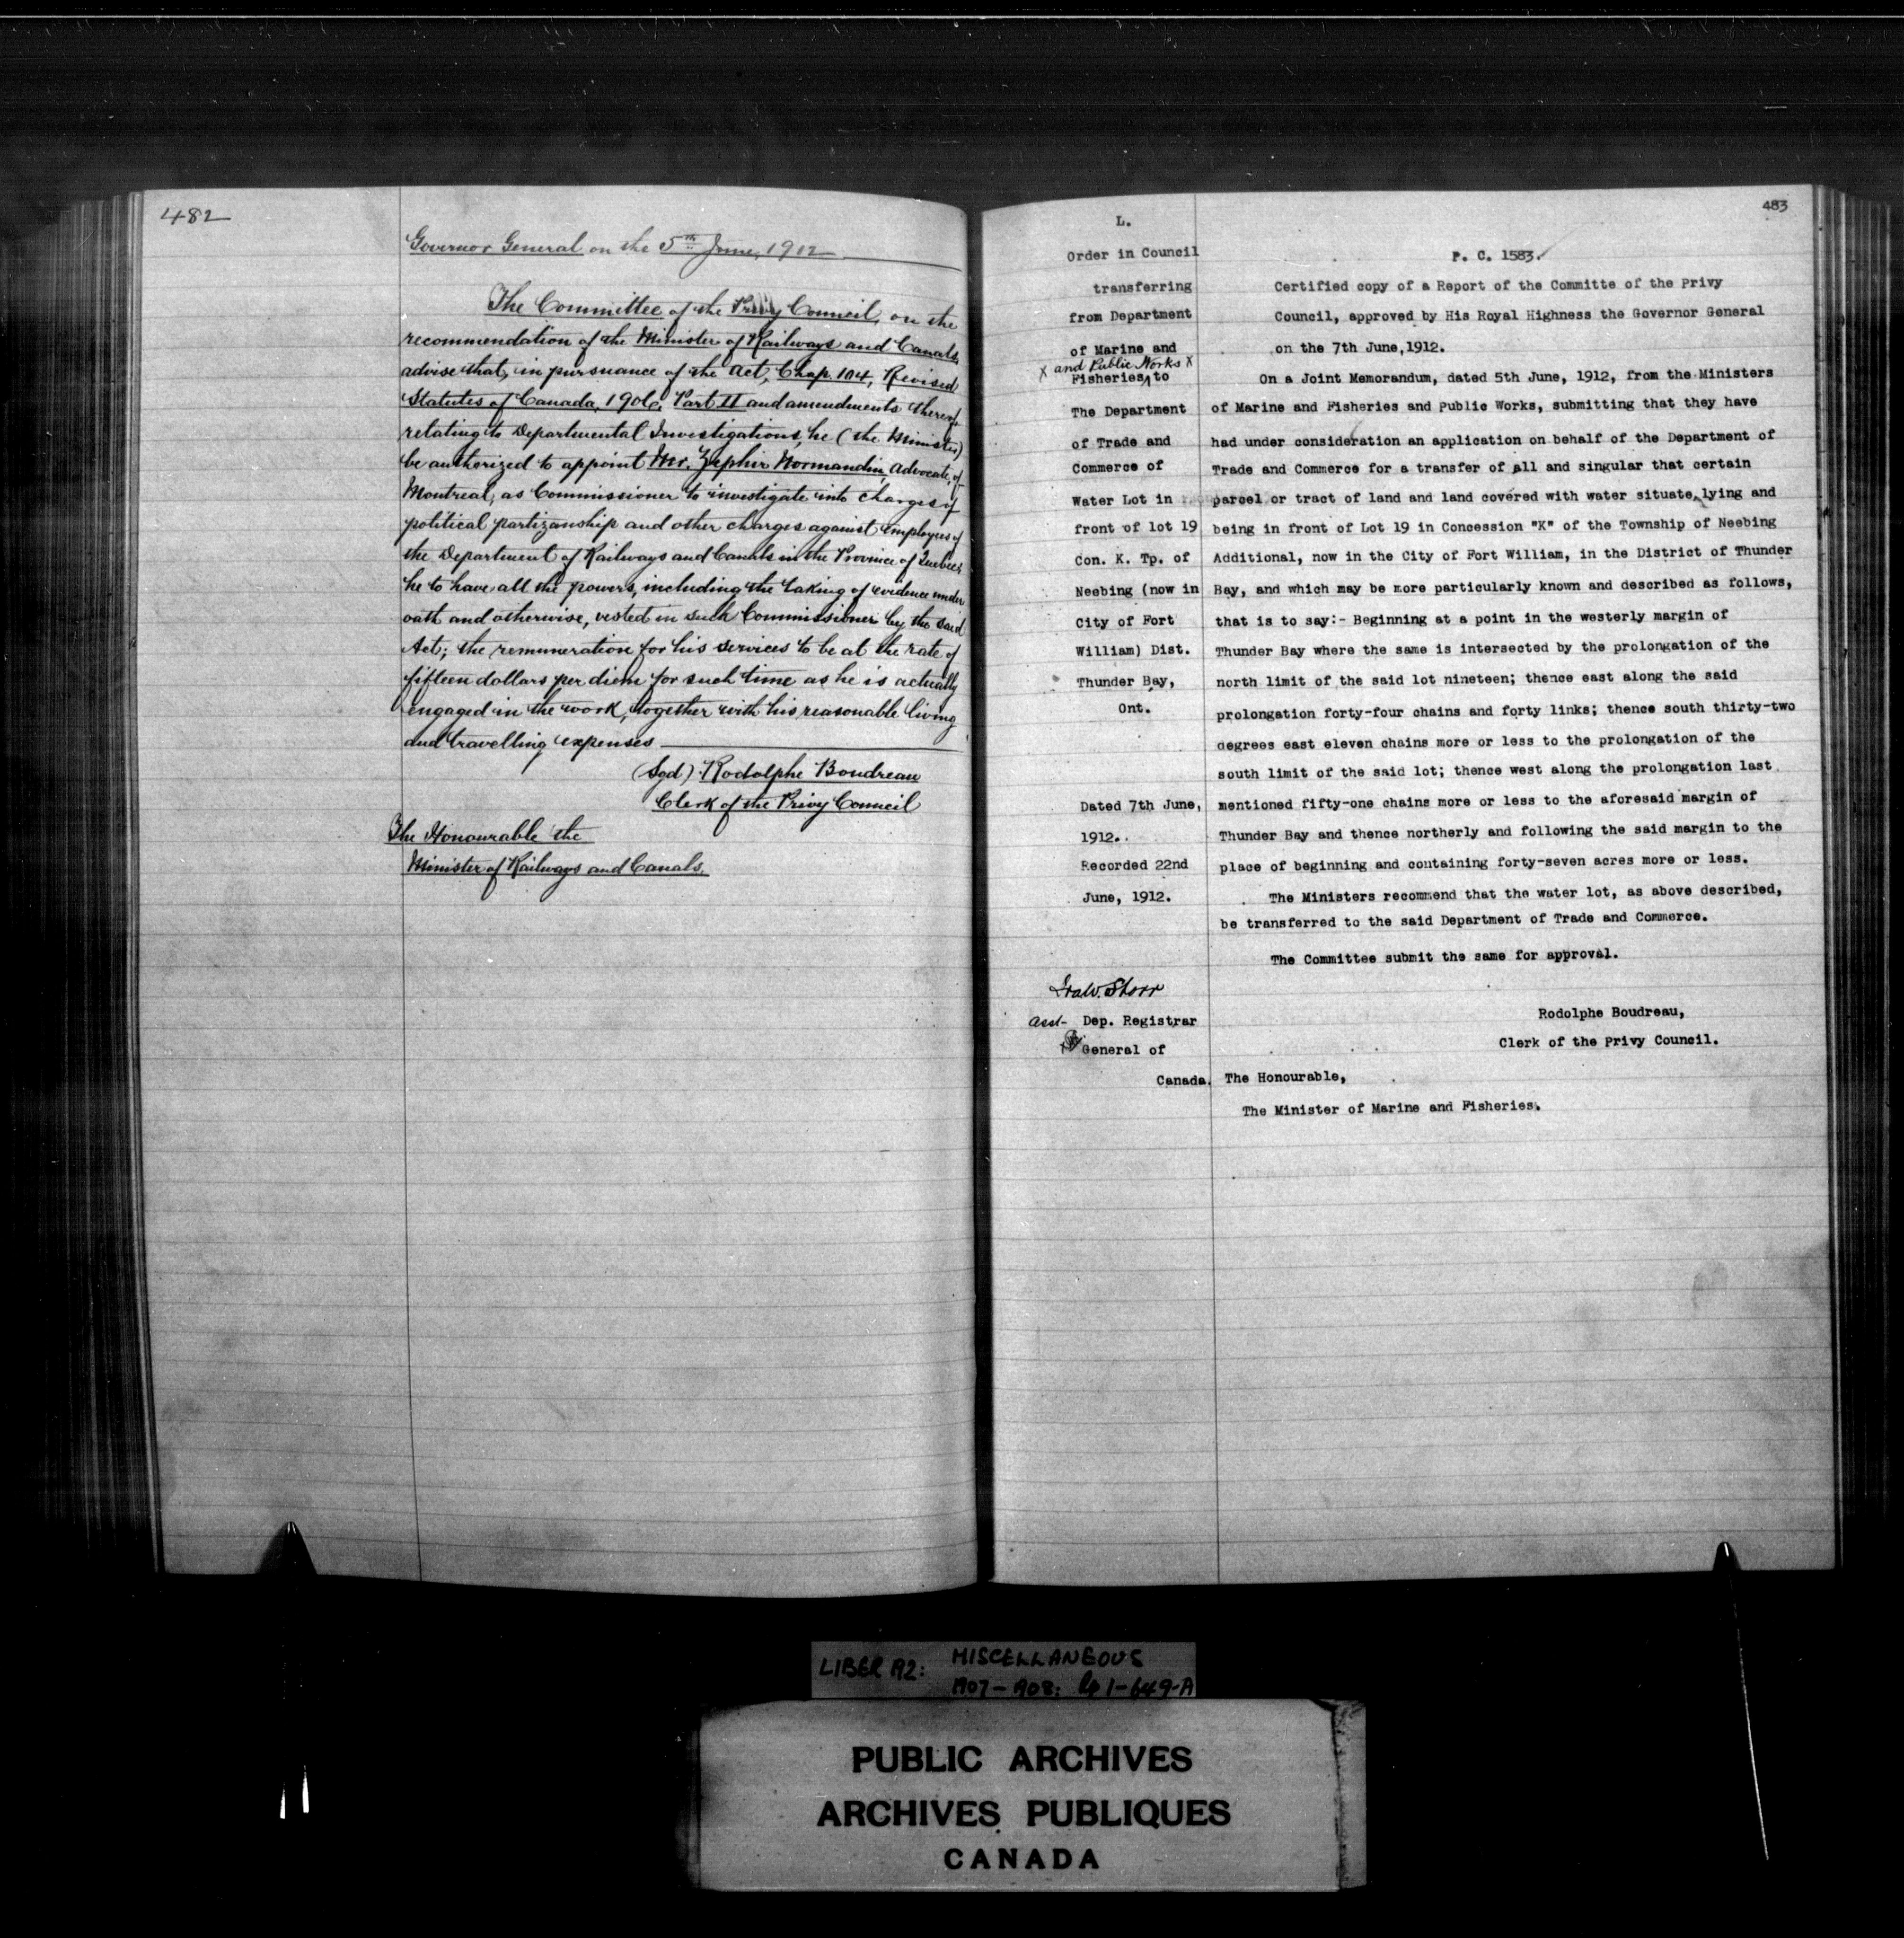 482
Governor General on the 5th June, 1912
The Committee of the Privy Council, on the
recommendation of the Minister of Railways and Canals,
advise that, in pursuance of the Act, Chap. 104, Revised
Statutes of Canada, 1906, Part II and amendments thereof,
relating to Departmental Investigations, he (the Minister)
be authorized to appoint Mr. Zephir Normandin, Advocate, of
Montreal, as Commissioner to investigate into charges of
political partizanship and other charges against employees of
the Department of Railways and Canals in the Province of Quebec,
he to have all the powers, including the taking of evidence under
oath and otherwise, vested in such Commissioner by the said
Act; the remuneration for his services to be at the rate of
fifteen dollars per diem for such time as he is actually
engaged in the work, together with his reasonable living
and travelling expenses
(Sgd) Rodolphe Boudreau
Clerk of the Privy Council
The Honourable the
Minister of Railways and Canals.
483
L.
Order in Council
transferring
from Department
of Marine and
x and Public Works x
Fisheries, to
The Department
of Trade and
Commerce of
Water Lot in
front of lot 19
Con. K. Tp. of
Neebing (now in
City of Fort
William) Dist.
Thunder Bay,
Ont.
Dated 7th June,
1912.
Recorded 22nd
June, 1912.
Asst- Dep. Registrar
General of
Canada.
P. C. 1583.
Certified copy of a Report of the Committe of the Privy
Council, approved by His Royal Highness the Governor General
on the 7th June,1912.
On a Joint Memorandum, dated 5th June, 1912, from the Ministers
of Marine and Fisheries and Public Works, submitting that they have
had under consideration an application on behalf of the Department of
Trade and Commerce for a transfer of all and singular that certain
parcel or tract of land and land covered with water situate,lying and
being in front of Lot 19 in Concession "K" of the Township of Neebing
Additional, now in the City of Fort William, in the District of Thunder
Bay, and which may be more particularly known and described as follows,
that is to say:- Beginning at a point in the westerly margin of
Thunder Bay where the same is intersected by the prolongation of the
north limit of the said lot nineteen; thence east along the said
prolongation forty-four chains and forty links; thence south thirty-two
degrees east eleven chains more or less to the prolongation of the
south limit of the said lot; thence west along the prolongation last
mentioned fifty-one chains more or less to the aforesaid margin of
Thunder Bay and thence northerly and following the said margin to the
place of beginning and containing forty-seven acres more or less.
The Ministers recommend that the water lot, as above described,
be transferred to the said Department of Trade and Commerce.
The Committee submit the same for approval.
Rodolphe Boudreau,
Clerk of the Privy Council.
The Honourable,
The Minister of Marine and Fisheries.
LIBER 192: MISCELLANEOUS
1907-1908: 1-649-A
PUBLIC ARCHIVES
ARCHIVES PUBLIQUES
CANADA